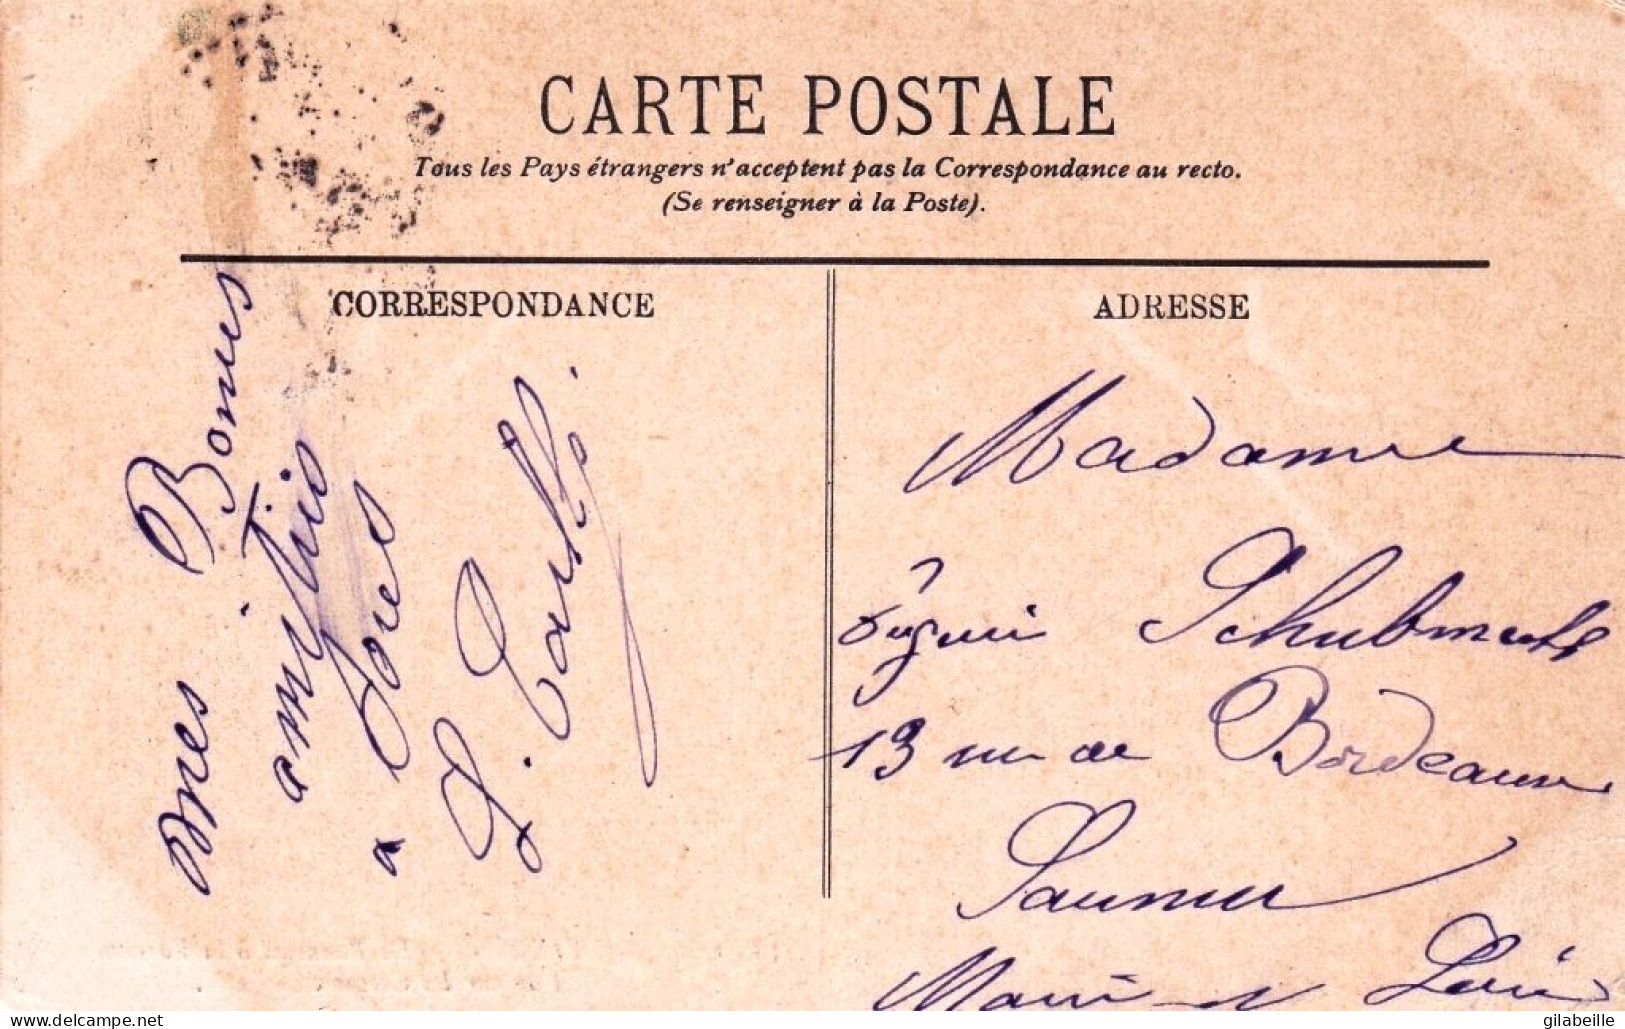 CARTE POSTALE
Tous les Pays étrangers n'acceptent pas la Correspondance au recto.
(Se renseigner à la Poste).
CORRESPONDANCE
mes Bonnes
amitiés
à tous
ADRESSE
Madame
13 rue de Bordeaux
Saumur
Maine et Loire
gilabeille